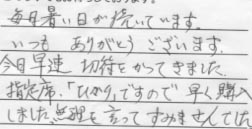 毎日暑い日が続いています。
いつも ありがとう ございます。
今日早速 切符を かってきました。
指定席、「ひかり」ですので 早く購入
しました。無理を言って すみませんでした